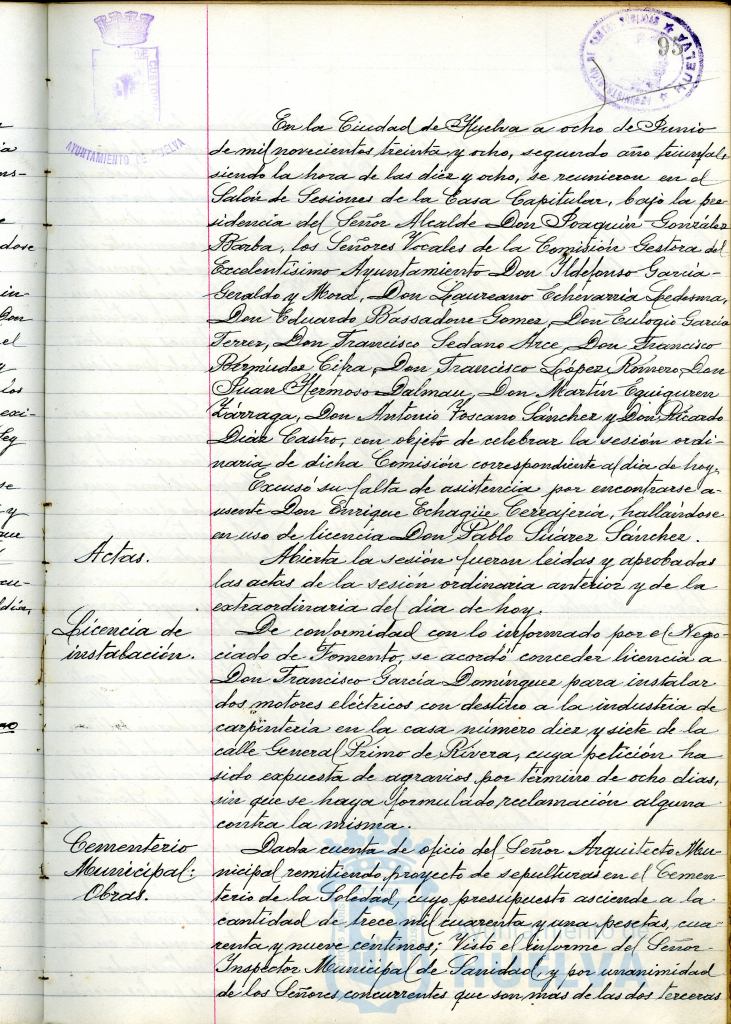 95
AYUNTAMIENTO DE HUELVA
HUELVA
En la Ciudad de Huelva a ocho de Junio
de mil novecientos treinta y ocho, segundo año triunfal,
siendo la hora de las diez y ocho, se reunieron en el
Salón de Sesiones de la Casa Capitular, bajo la pre-
sidencia del Señor Alcalde Don Joaquín González
Barba, los Señores Vocales de la Comisión Gestora del
Excelentísimo Ayuntamiento Don Ildefonso García-
Geraldo y Mora, Don Laureano Echevarría Ledesma,
Don Eduardo Bassadone Gomez, Don Eulogio García
Ferrer, Don Francisco Sedano Arce, Don Francisco
Bermúdez Cifra, Don Francisco López Romero, Don
Juan Hermoso Dalmau, Don Martín Eguiguren
Zárraga, Don Antonio Toscano Sánchez y Don Ricardo
Díaz Castro, con objeto de celebrar la sesión ordi-
naria de dicha Comisión correspondiente al día de hoy.
Excusó su falta de asistencia por encontrarse a-
usente Don Enrique Echagüe Cerrafería, hallándose
en uso de licencia Don Pablo Suárez Sánchez.
Actas.
Abierta la sesión fueron leídas y aprobadas
las actas de la sesión ordinaria anterior y de la
extraordinaria del día de hoy.
Licencia de
instalación.
De conformidad con lo informado por el Nego-
ciado de Fomento, se acordó conceder licencia a
Don Francisco García Domínguez para instalar
dos motores eléctricos con destino a la industria de
carpintería en la casa número diez y siete de la
calle General Primo de Rivera, cuya petición ha
sido expuesta de agravios por término de ocho días,
sin que se haya formulado reclamación alguna
contra la misma.
Cementerio
Municipal:
Obras.
Dada cuenta de oficio del Señor Arquitecto Mu-
nicipal remitiendo proyecto de sepulturas en el Cemen-
terio de la Soledad, cuyo presupuesto asciende a la
cantidad de trece mil cuarenta y una pesetas, cua-
renta y nueve céntimos; Visto el informe del Señor
Inspector Municipal de Sanidad, y por unanimidad
de los Señores concurrentes que son más de las dos terceras
Ayuntamiento de
HUELVA